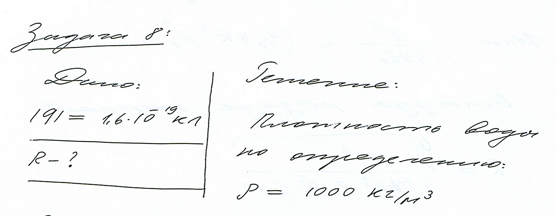 Задача 8:
Дано:
|q| = 1,6·10⁻¹⁹ кл
R - ?
Решение:
Плотность воды
по определению:
ρ = 1000 кг/м³